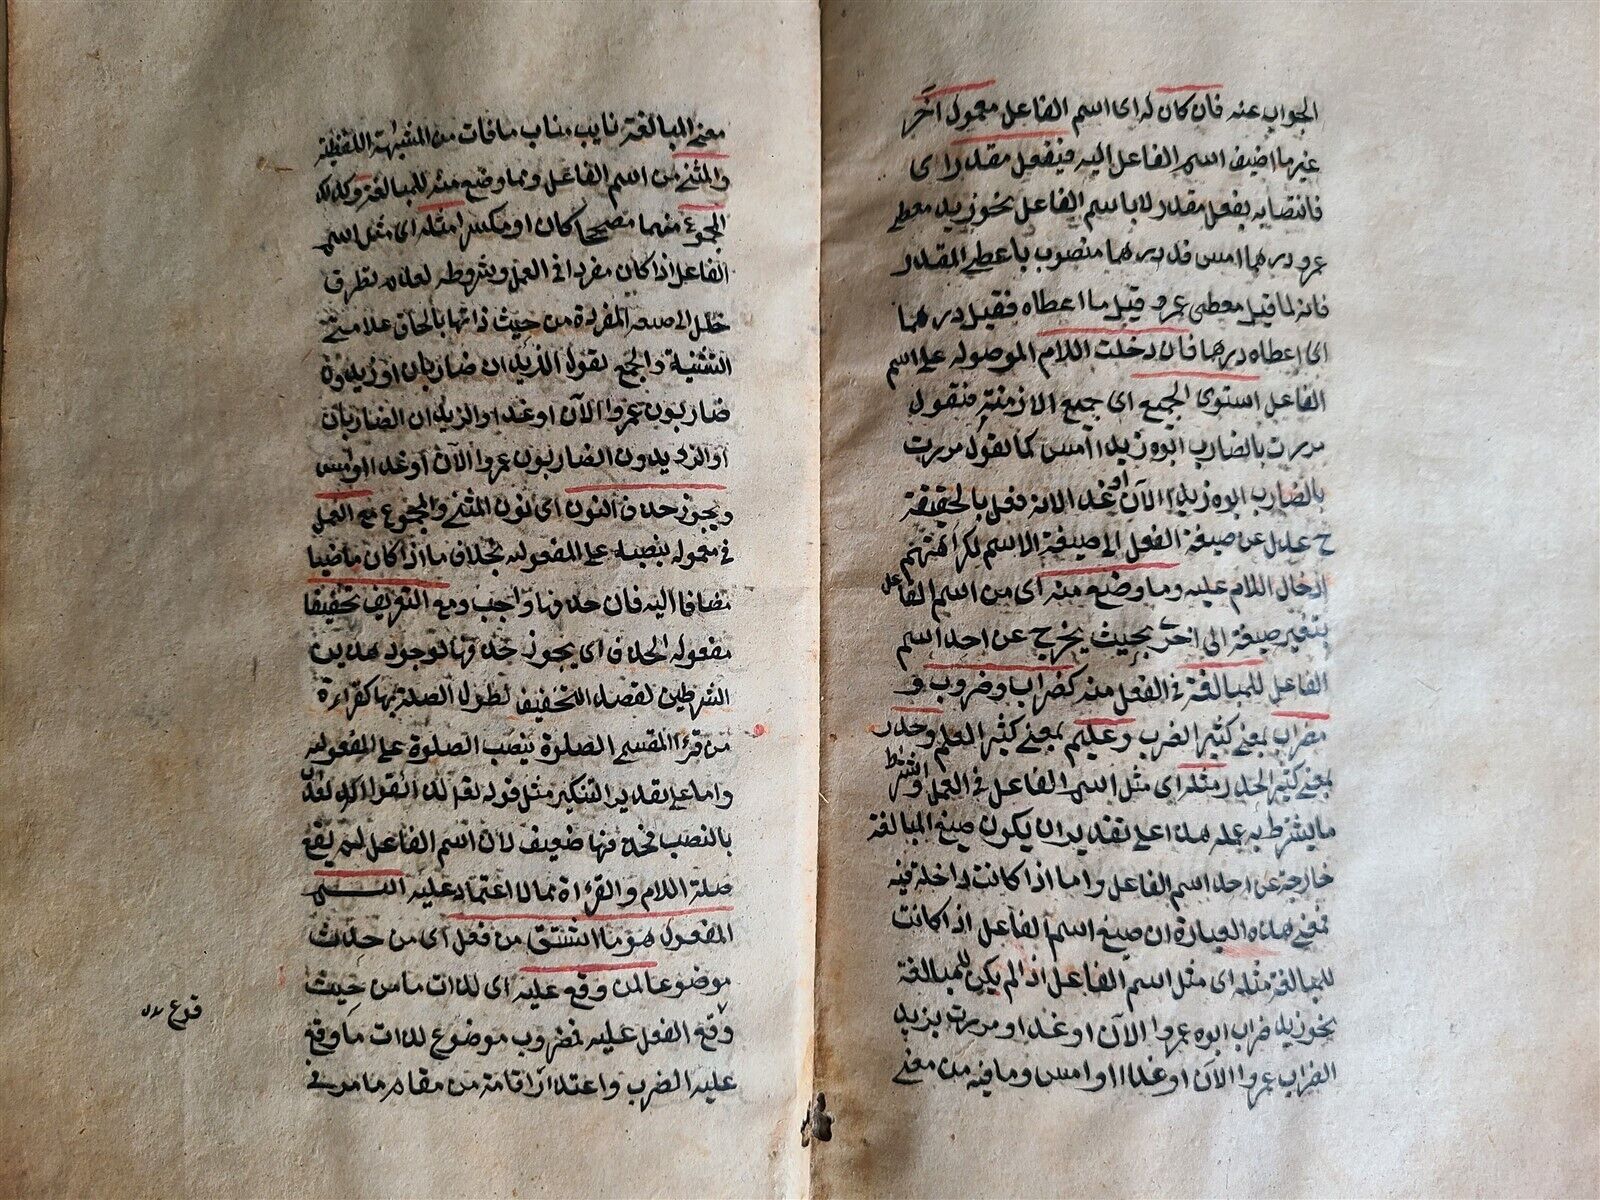 الجواب عنه فان كان له اى اسم الفاعل معمول اخر
غير ما اضيف اسم الفاعل اليه فبفعل مقدر اى
فانتصابه بفعل مقدر لا باسم الفاعل نحو زيد معطى
عمرو درهما امس فدرهما منصوب باعطى المقدر
فانه لما قيل معطى عمرو قيل ما اعطاه فقيل درهما
اى اعطاه درهما فان دخلت اللام الموصولة على اسم
الفاعل استوى الجميع اى جميع الازمنة فتقول
مررت بالضارب ابوه زيدا امس كما تقول مررت
بالضارب ابوه زيدا الآن او غدا لانه فعل بالحقيقة
ح عدل عن صيغة الفعل الى صيغة الاسم لكراهتهم
ادخال اللام عليه وما وضع منه اى من اسم الفاعل
بتغير صيغة الى اخرى بحيث يخرج عن احد اسم
الفاعل للمبالغة فى الفعل منه كضراب وضروب و
مضراب بمعنى كثير الضرب وعليم بمعنى كثير العلم وحذر
بمعنى كثير الحذر مثله اى مثل اسم الفاعل فى العمل واشتراط
ما يشترط به عمله هذا على تقدير ان يكون صيغ المبالغة
خارجة عن احد اسم الفاعل واما اذا كانت داخلة فيه
فمعنى هذه العبارة ان صيغ اسم الفاعل اذا كانت
للمبالغة مثله اى مثل اسم الفاعل اذا لم يكن للمبالغة
نحو زيد ضراب ابوه عمروا الآن او غدا او مررت بزيد
الضراب عمروا الآن او غدا او امس وما فيه من معنى
معنى المبالغة نايب مناب ما فات من المشبهة اللفظية
والمثنى من اسم الفاعل وما وضع منه للمبالغة وكذلك
المجموع منهما مصححا كان او مكسرا مثله اى مثل اسم
الفاعل اذا كان مفردا فى العمل وشروطه لعدم تطرق
خلل الى صيغة المفردة من حيث ذاتها بالحاق علامتى
التثنية والجمع تقول الزيدان ضاربان او زيدون
ضاربون عمروا الآن او غدا والزيدان الضاربان
او الزيدون الضاربون عمروا الآن او غدا او امس
ويجوز حذف النون اى نون المثنى والمجموع مع العمل
فى معموله بنصبه على المفعولية بخلاف ما اذا كان ماضيا
مضافا اليه فان حذفها واجب ومع التعريف تخفيفا
مفعوله الحذف اى يجوز حذفها لوجود هذين
الشرطين لقصد التخفيف لطول الصلة بها كقراءة
من قرء المقيمى الصلوة بنصب الصلوة على المفعولية
واما على تقدير التنكير مثل قوله تعالى لذائقوا العذاب
بالنصب فحذفها ضعيف لان اسم الفاعل لم يقع
صلة اللام والقراءة مما لا اعتماد عليه اسم
المفعول هو ما اشتق من فعل اى من حدث
موضوعا لمن وقع عليه اى لذات ما من حيث
وقع الفعل عليه فمضروب موضوع لذات ما وقع
عليه الضرب واعتذار اقامة من مقام ما مر فى